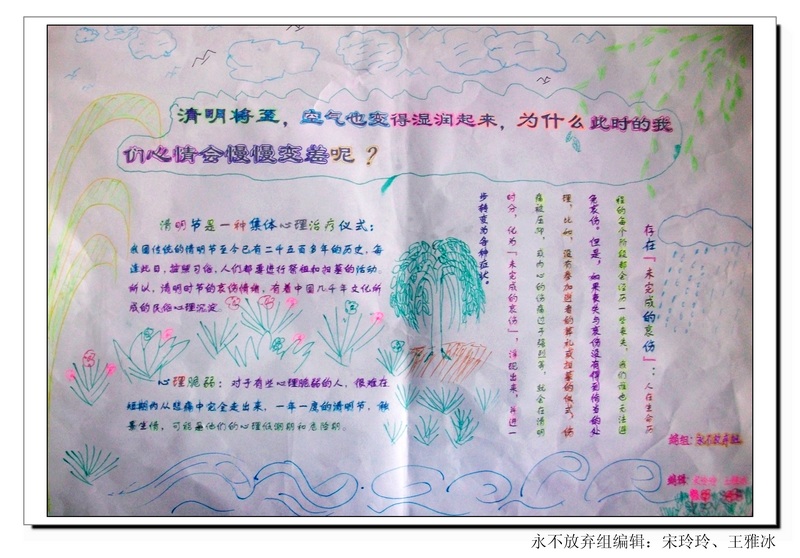 清明将至，空气也变得湿润起来，为什么此时的我
们心情会慢慢变差呢？
清明节是一种集体心理治疗仪式：
我国传统的清明节至今已有二千五百多年的历史，每
逢此日，按照习俗，人们都要进行祭祖和扫墓的活动。
所以，清明时节的哀伤情绪，有着中国几千年文化所
成的民俗心理沉淀。
心理脆弱：对于有些心理脆弱的人，很难在
短期内从悲痛中完全走出来，一年一度的清明节，触
景生情，可能是他们的心理低潮期和危险期。
存在『未完成的哀伤』：人在生命历
程的每个阶段都会经历一些丧失，我们谁也无法避
免哀伤。但是，如果丧失与哀伤没有得到恰当的处
理，比如，没有参加逝者的葬礼或扫墓的仪式，伤
痛被压抑，或内心的伤痛过于强烈等，就会在清明
时分，化为『未完成的哀伤』，浮现出来，并进一
步转变为各种症状。
永不放弃组编辑：宋玲玲、王雅冰